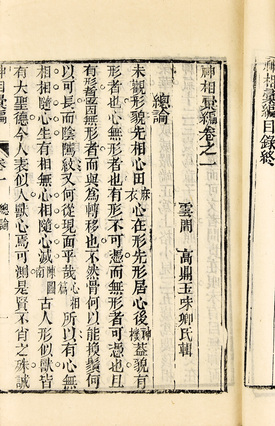 神相彙編目錄終
神相彙編卷之一
雲間 高鼎玉味卿氏輯
總論
未觀形貌先相心田麻衣心在形先形居心後神蓋貌有
形者也心無形者也有形不可憑而無形者可憑也且
有形者因無形者而與為轉移也不然骨何以能換鬚何
以可長而陰隲紋又何從現面乎哉心相篇所以有心無
相相隨心生有相無心相隨心滅陳圖南古人形似獸皆
有大聖德今人表似人獸心焉可測是賢不肖之殊誠
神相彙編 卷一 總論